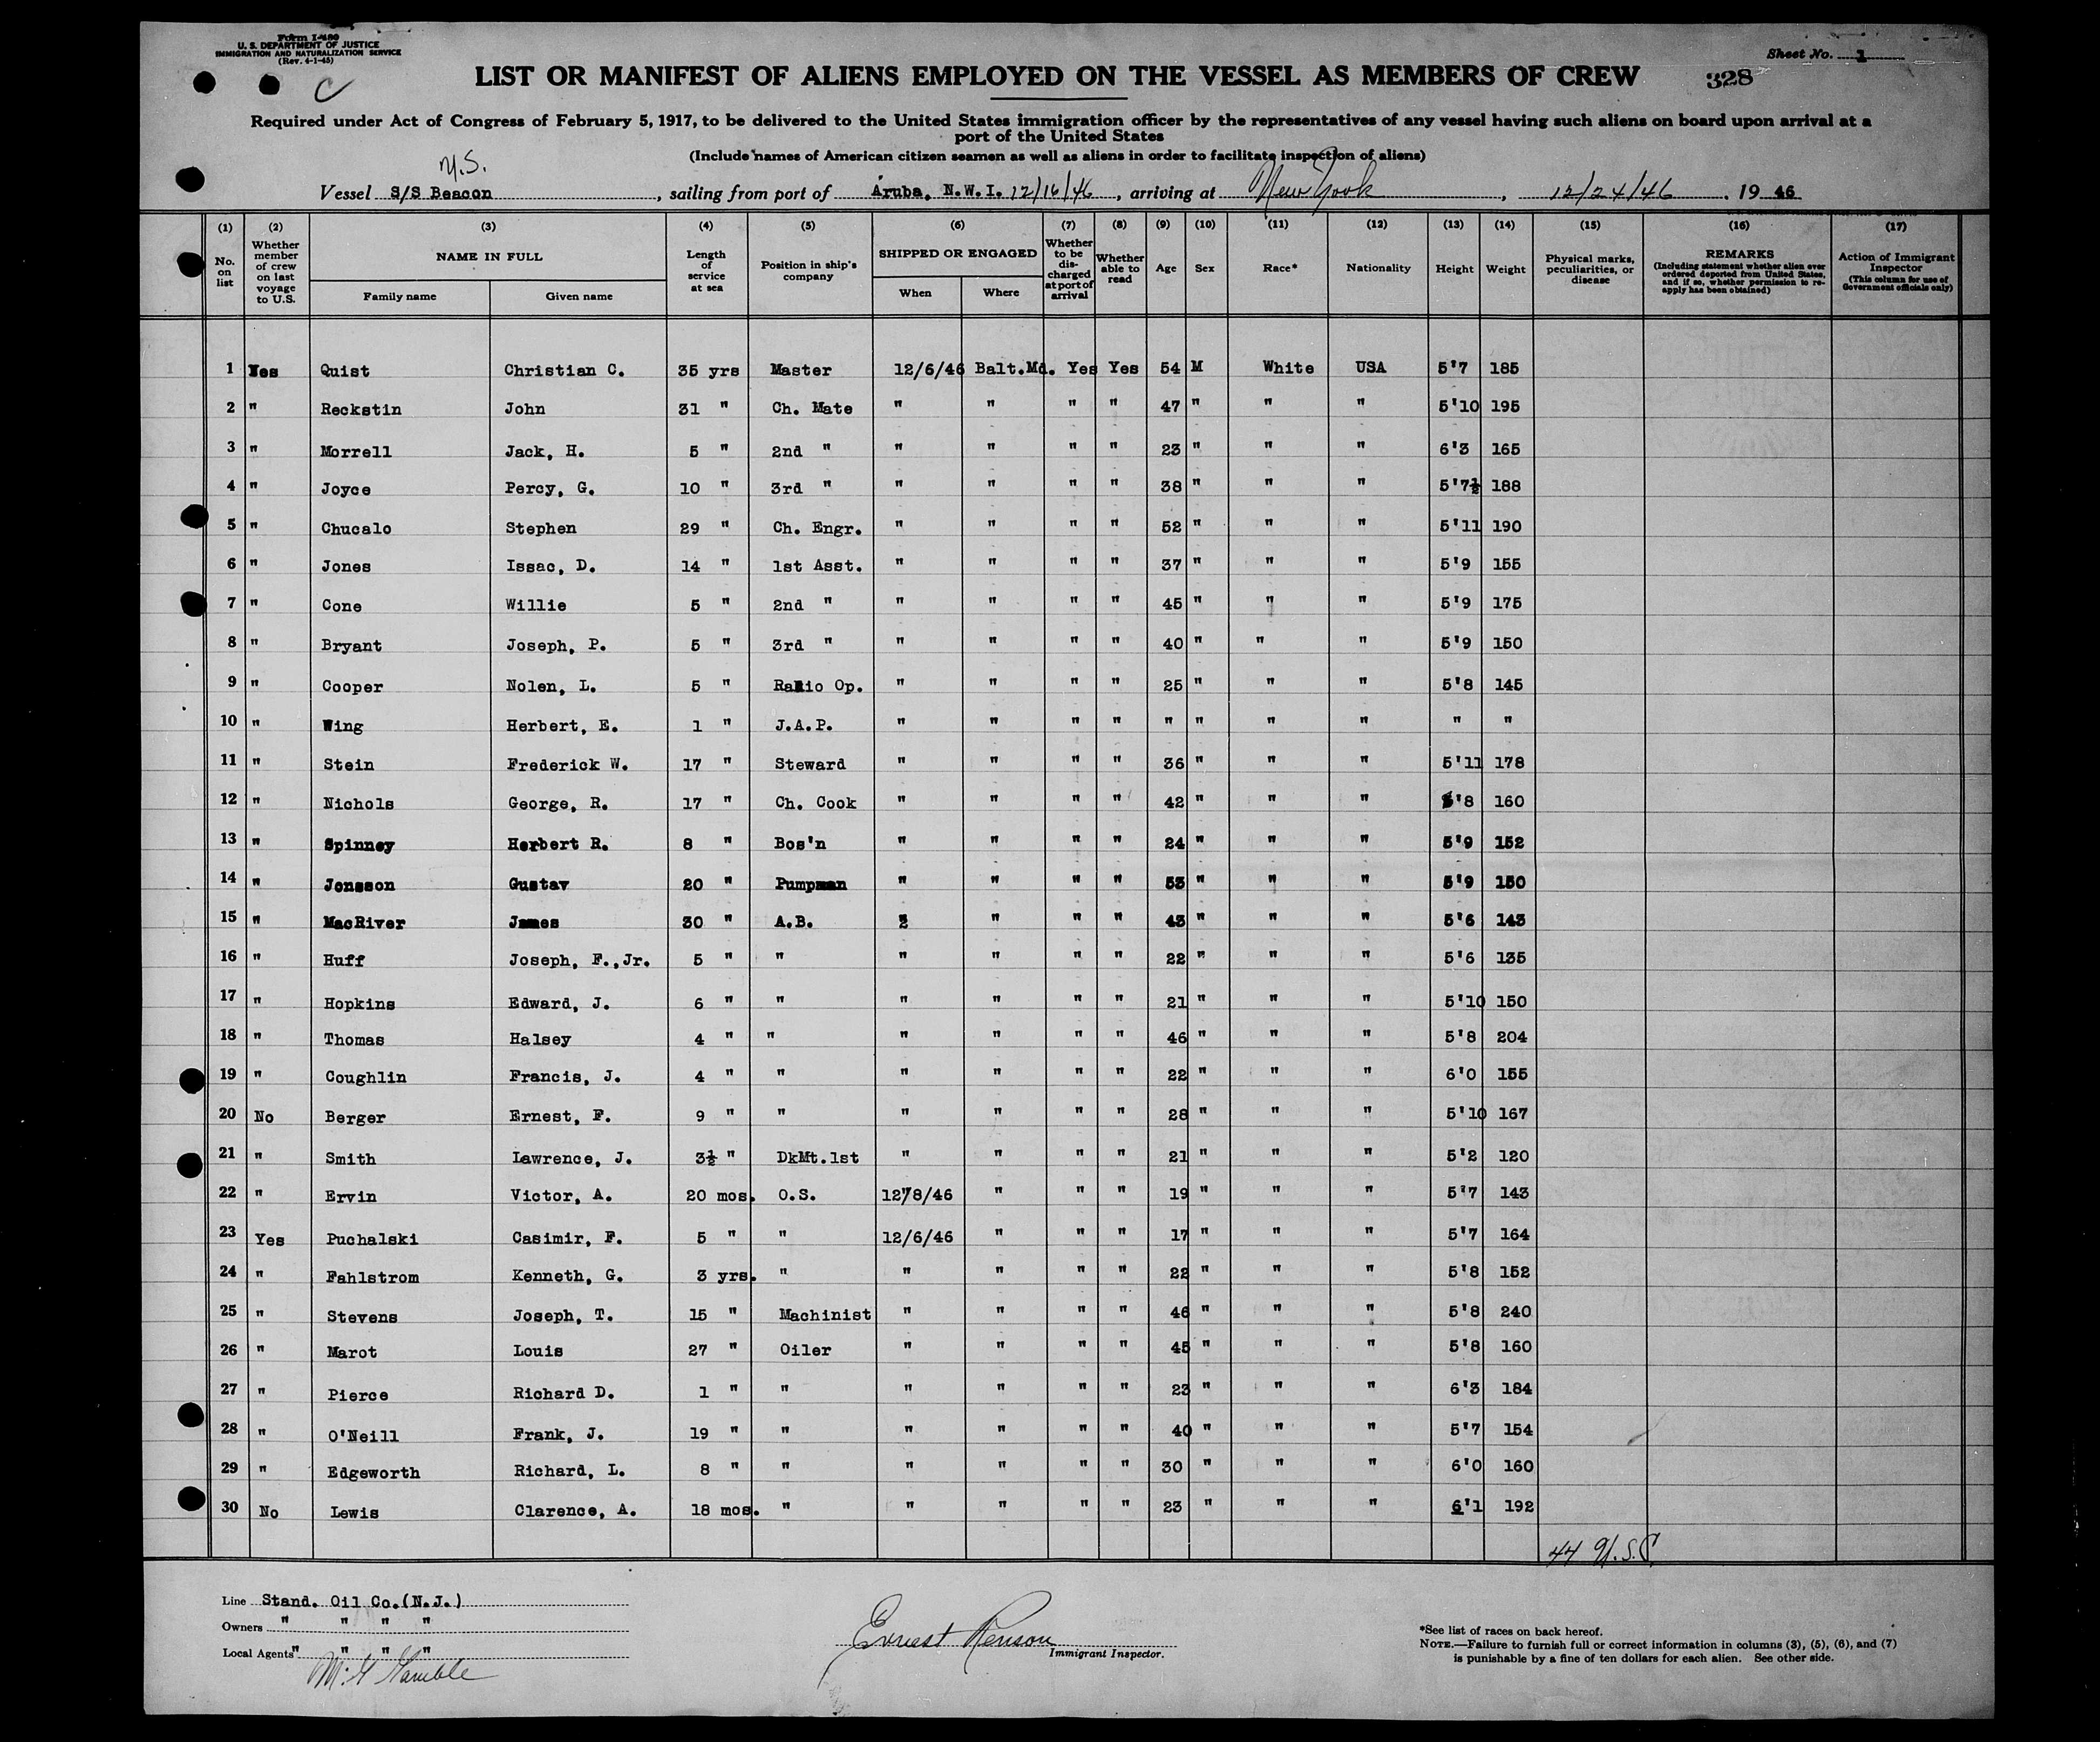 Form I-480
U. S. DEPARTMENT OF JUSTICE
IMMIGRATION AND NATURALIZATION SERVICE
(Rev. 4-1-45)
C
Sheet No. 1
LIST OR MANIFEST OF ALIENS EMPLOYED ON THE VESSEL AS MEMBERS OF CREW 328
Required under Act of Congress of February 5, 1917, to be delivered to the United States immigration officer by the representatives of any vessel having such aliens on board upon arrival at a
port of the United States
(Include names of American citizen seamen as well as aliens in order to facilitate inspection of aliens)
U.S.
Vessel S/S Beacon, sailing from port of Aruba, N.W.I. 12/16/46, arriving at New York, 12/24/46. 19 46
(1) (2) (3) (4) (5) (6) (7) (8) (9) (10) (11) (12) (13) (14) (15) (16) (17)
No. on list
Whether member of crew on last voyage to U.S.
NAME IN FULL
Family name Given name
Length of service at sea
Position in ship's company
SHIPPED OR ENGAGED
When Where
Whether to be discharged at port of arrival
Whether able to read
Age Sex Race* Nationality Height Weight
Physical marks, peculiarities, or disease
REMARKS
(Including statement whether alien ever ordered deported from United States, and if so, whether permission to re-apply has been obtained)
Action of Immigrant Inspector
(This column for use of Government officials only)
1 Yes Quist Christian C. 35 yrs Master 12/6/46 Balt.Md. Yes Yes 54 M White USA 5'7 185
2 " Reckstin John 31 " Ch. Mate " " " " 47 " " " 5'10 195
3 " Morrell Jack, H. 5 " 2nd " " " " " 23 " " " 6'3 165
4 " Joyce Percy, G. 10 " 3rd " " " " " 38 " " " 5'7½ 188
5 " Chucalo Stephen 29 " Ch. Engr. " " " " 52 " " " 5'11 190
6 " Jones Issac, D. 14 " 1st Asst. " " " " 37 " " " 5'9 155
7 " Cone Willie 5 " 2nd " " " " " 45 " " " 5'9 175
8 " Bryant Joseph, P. 5 " 3rd " " " " " 40 " " " 5'9 150
9 " Cooper Nolen, L. 5 " Radio Op. " " " " 25 " " " 5'8 145
10 " Wing Herbert, E. 1 " J.A.P. " " " " " " " " " "
11 " Stein Frederick W. 17 " Steward " " " " 36 " " " 5'11 178
12 " Nichols George, R. 17 " Ch. Cook " " " " 42 " " " 5'8 160
13 " Spinney Herbert R. 8 " Bos'n " " " " 24 " " " 5'9 152
14 " Jonsson Gustav 20 " Pumpman " " " " 53 " " " 5'9 150
15 " MacRiver James 30 " A.B. " " " " 43 " " " 5'6 143
16 " Huff Joseph, F.,Jr. 5 " " " " " " 22 " " " 5'6 135
17 " Hopkins Edward, J. 6 " " " " " " 21 " " " 5'10 150
18 " Thomas Halsey 4 " " " " " " 46 " " " 5'8 204
19 " Coughlin Francis, J. 4 " " " " " " 22 " " " 6'0 155
20 No Berger Ernest, F. 9 " " " " " " 28 " " " 5'10 167
21 " Smith Lawrence, J. 3½ " DkMt.1st " " " " 21 " " " 5'2 120
22 " Ervin Victor, A. 20 mos. O.S. 12/8/46 " " " 19 " " " 5'7 143
23 Yes Puchalski Casimir, F. 5 " " 12/6/46 " " " 17 " " " 5'7 164
24 " Fahlstrom Kenneth, G. 3 yrs. " " " " " 22 " " " 5'8 152
25 " Stevens Joseph, T. 15 " Machinist " " " " 46 " " " 5'8 240
26 " Marot Louis 27 " Oiler " " " " 45 " " " 5'8 160
27 " Pierce Richard D. 1 " " " " " " 23 " " " 6'3 184
28 " O'Neill Frank, J. 19 " " " " " " 40 " " " 5'7 154
29 " Edgeworth Richard, L. 8 " " " " " " 30 " " " 6'0 160
30 No Lewis Clarence, A. 18 mos. " " " " " 23 " " " 6'1 192
44 U.S.C.
Line Stand. Oil Co.(N.J.)
Owners " " " "
Local Agents " " " "
Ernest Renson
Immigrant Inspector.
*See list of races on back hereof.
NOTE.—Failure to furnish full or correct information in columns (3), (5), (6), and (7)
is punishable by a fine of ten dollars for each alien. See other side.